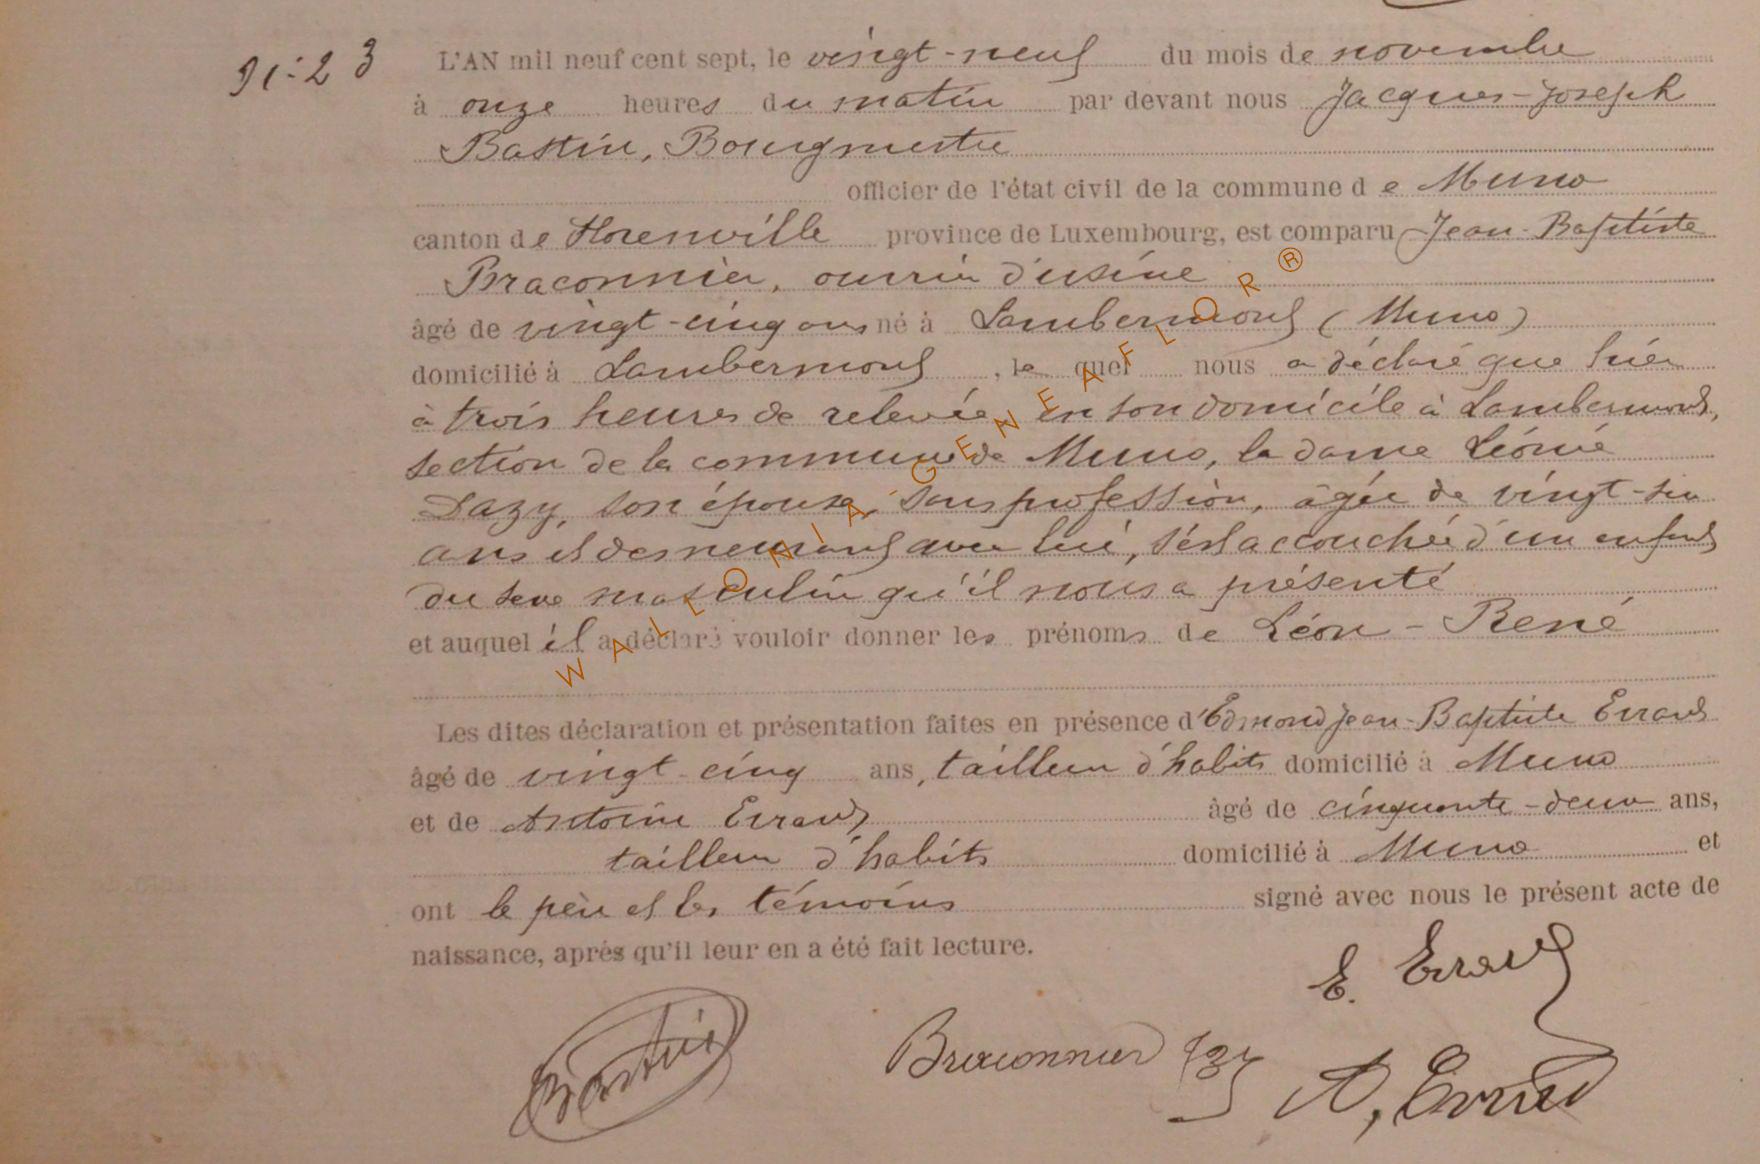 N: 23
L'AN mil neuf cent sept, le vingt-neuf du mois de novembre
à onze heures du matin par devant nous Jacques-Joseph
Bastin, Bourgmestre
officier de l'état civil de la commune de Muno
canton de Florenville province de Luxembourg, est comparu Jean-Baptiste
Braconnier, ouvrier d'usine
âgé de vingt-cinq ans né à Lambermont (Muno)
domicilié à Lambermont, lequel nous a déclaré que hier
à trois heures de relevée, en son domicile à Lambermont,
section de la commune de Muno, la dame Léonie
Dazy, son épouse, sans profession, âgée de vingt-six
ans et demeurant avec lui, s'est accouchée d'un enfant
du sexe masculin qu'il nous a présenté
et auquel il a déclaré vouloir donner les prénoms de Léon-René
Les dites déclaration et présentation faites en présence d'Edmond Jean-Baptiste Errard
âgé de vingt-cinq ans, tailleur d'habits domicilié à Muno
et de Antoine Errard âgé de cinquante-deux ans,
tailleur d'habits domicilié à Muno et
ont le père et les témoins signé avec nous le présent acte de
naissance, après qu'il leur en a été fait lecture.
E. Errard
Bastin
Braconnier JB
A, Errard
WALLONIA-GENEAFLOR®